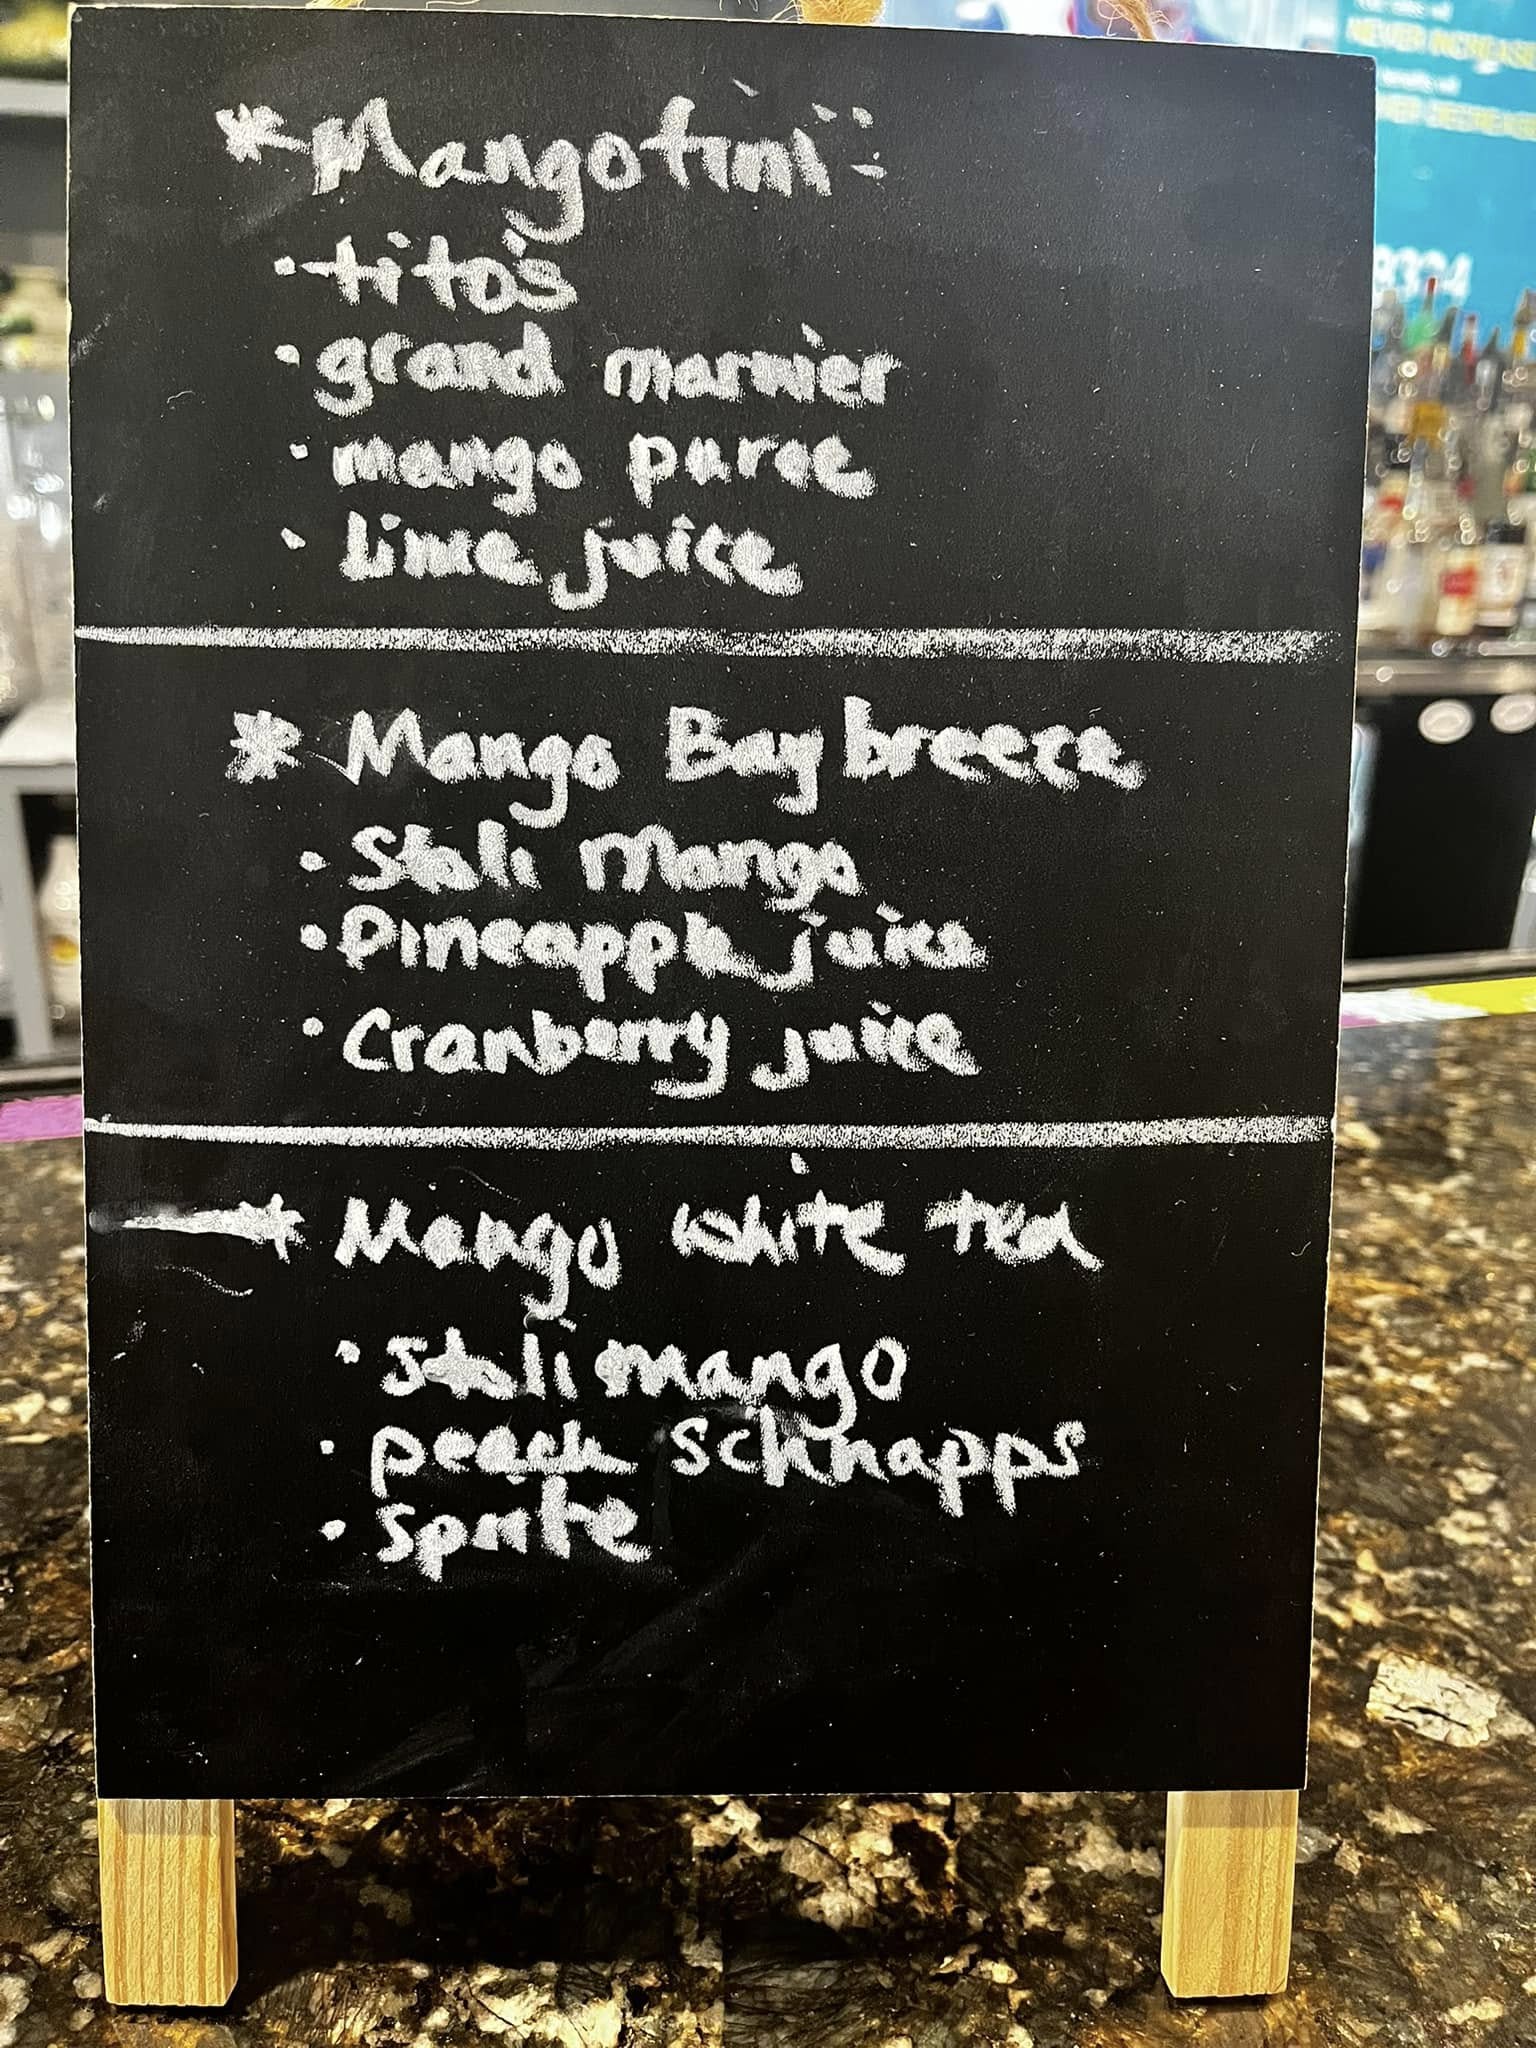 NEVER INCREASE
8334
*Mangotini
• tito's
• grand marnier
• mango puree
• Lime juice
* Mango Bay breeze
• Stoli Mango
• Pineapple juice
• Cranberry juice
* Mango white tea
• Stoli mango
• peach schnapps
• Sprite